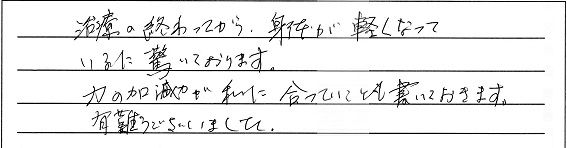 治療の終わってから、身体が軽くなって
いるに驚いております。
力の加減が私に合っていことも書いておきます。
有難うございました。